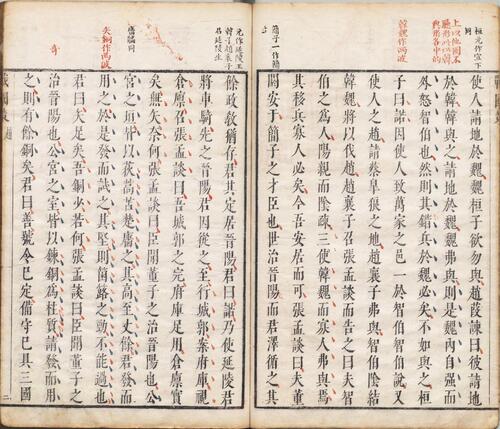 桓元作宣下
同
上以他國不
聽形此以韓
與形各中的
韓魏作兩波
簡子一作簡
主
使人請地於魏魏桓子欲勿與趙葭諫曰彼請地
於韓韓與之請地於魏魏弗與則是魏內自强而
外怒智伯也然則其錯兵於魏必矣不如與之桓
子曰諾因使人致萬家之邑一於智伯智伯說又
使人之趙請蔡皐狼之地趙襄子弗與智伯陰結
韓魏將以伐趙趙襄子召張孟談而告之曰夫智
伯之爲人陽親而陰疏三使韓魏而寡人弗與焉
其移兵寡人必矣今吾安居而可張孟談曰夫董
閼安于簡子之才臣也世治晉陽而尹澤循之其
元作延陵王
韓子趙襄子
召延陵生
廧牆同
矢銅作兩波
奇
餘政敎猶存君其定居晉陽君曰諾乃使延陵君
將車騎先之晉陽君因從之至行城郭案府庫視
倉廩召張孟談曰吾城郭之完府庫足用倉廩實
矣無矢奈何張孟談曰臣聞董子之治晉陽也公
宮之垣皆以荻蒿苫楚廧之其高至丈餘君發而
用之於是發而試之其堅則箘簬之勁不能過也
君曰矢足矣吾銅少若何張孟談曰臣聞董子之
治晉陽也公宮之室皆以鍊銅爲柱質請發而用
之則有餘銅矣君曰善號令已定備守已具三國